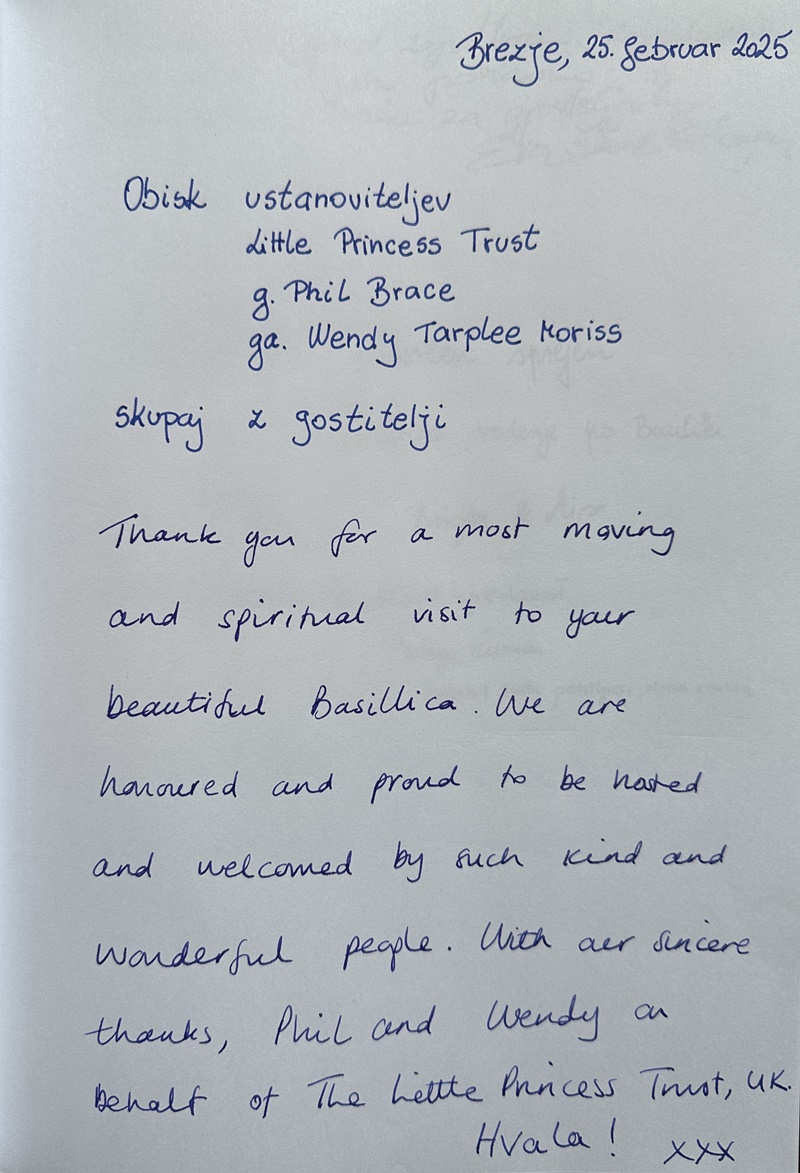 Brezje, 25. februar 2025
Obisk ustanoviteljev
Little Princess Trust
g. Phil Brace
ga. Wendy Tarplee Moriss
skupaj z gostitelji
Thank you for a most moving
and spiritual visit to your
beautiful Basillica. We are
honoured and proud to be hosted
and welcomed by such kind and
wonderful people. With our sincere
thanks, Phil and Wendy on
behalf of The Little Princess Trust, UK.
Hvala! xxx